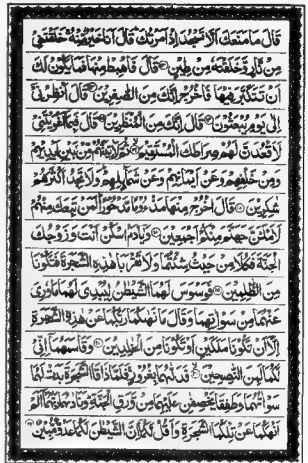 قَالَ مَا مَنَعَكَ اَلَّا تَسْجُدَ اِذْ اَمَرْتُكَ قَالَ اَنَا خَيْرٌ مِّنْهُ خَلَقْتَنِيْ
مِنْ نَّارٍ وَّخَلَقْتَهٗ مِنْ طِيْنٍ قَالَ فَاهْبِطْ مِنْهَا فَمَا يَكُوْنُ لَكَ
اَنْ تَتَكَبَّرَ فِيْهَا فَاخْرُجْ اِنَّكَ مِنَ الصّٰغِرِيْنَ قَالَ اَنْظِرْنِيْ
اِلٰى يَوْمِ يُبْعَثُوْنَ قَالَ اِنَّكَ مِنَ الْمُنْظَرِيْنَ قَالَ فَبِمَا اَغْوَيْتَنِيْ
لَاَقْعُدَنَّ لَهُمْ صِرَاطَكَ الْمُسْتَقِيْمَ ثُمَّ لَاٰتِيَنَّهُمْ مِّنْ بَيْنِ اَيْدِيْهِمْ
وَمِنْ خَلْفِهِمْ وَعَنْ اَيْمَانِهِمْ وَعَنْ شَمَآئِلِهِمْ وَلَا تَجِدُ اَكْثَرَهُمْ
شٰكِرِيْنَ قَالَ اخْرُجْ مِنْهَا مَذْءُوْمًا مَّدْحُوْرًا لَمَنْ تَبِعَكَ مِنْهُمْ
لَاَمْلَئَنَّ جَهَنَّمَ مِنْكُمْ اَجْمَعِيْنَ وَيٰٓاٰدَمُ اسْكُنْ اَنْتَ وَزَوْجُكَ
الْجَنَّةَ فَكُلَا مِنْ حَيْثُ شِئْتُمَا وَلَا تَقْرَبَا هٰذِهِ الشَّجَرَةَ فَتَكُوْنَا
مِنَ الظّٰلِمِيْنَ فَوَسْوَسَ لَهُمَا الشَّيْطٰنُ لِيُبْدِيَ لَهُمَا مَا وٗرِيَ
عَنْهُمَا مِنْ سَوْاٰتِهِمَا وَقَالَ مَا نَهٰىكُمَا رَبُّكُمَا عَنْ هٰذِهِ الشَّجَرَةِ
اِلَّآ اَنْ تَكُوْنَا مَلَكَيْنِ اَوْ تَكُوْنَا مِنَ الْخٰلِدِيْنَ وَقَاسَمَهُمَآ اِنِّيْ
لَكُمَا لَمِنَ النّٰصِحِيْنَ فَدَلّٰىهُمَا بِغُرُوْرٍ فَلَمَّا ذَاقَا الشَّجَرَةَ بَدَتْ لَهُمَا
سَوْاٰتُهُمَا وَطَفِقَا يَخْصِفٰنِ عَلَيْهِمَا مِنْ وَّرَقِ الْجَنَّةِ وَنَادٰىهُمَا رَبُّهُمَآ اَلَمْ
اَنْهَكُمَا عَنْ تِلْكُمَا الشَّجَرَةِ وَاَقُلْ لَّكُمَآ اِنَّ الشَّيْطٰنَ لَكُمَا عَدُوٌّ مُّبِيْنٌ